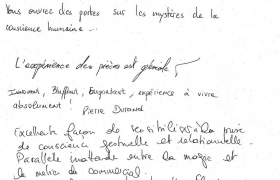 Vous ouvrez des portes sur les mystères de la
conscience humaine ...
L'expérience des pièces est géniale
Innovant, Bluffant, Emportant, expérience à vivre
absolument !
Pierre Durand
Excellente façon de sensibiliser à la prise
de conscience gestuelle et relationnelle.
Parallèle entre la magie et
le métier de commercial.